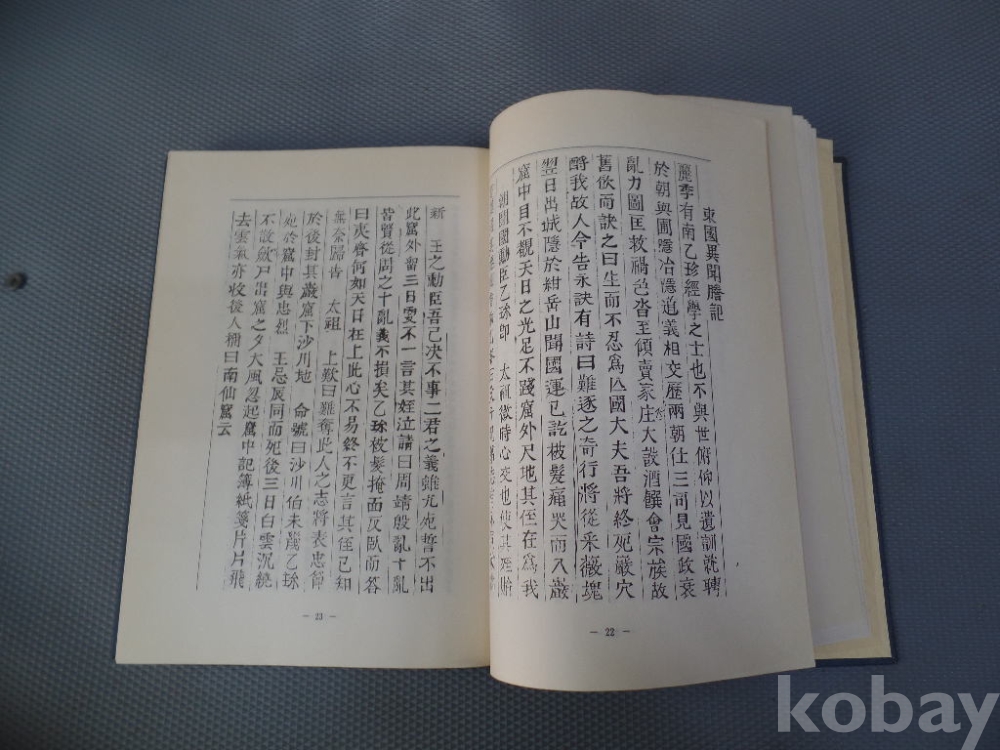 東國異聞謄記
麗季有南乙珍經學之士也不與世俯仰以遺訓就聘
於朝與圃隱冶隱道義相交歷兩朝仕三司見國政衰
亂力圖匡救禍色沓至傾賣家庄大設酒饌會宗族故
舊飮而訣之曰生而不忍爲亡國大夫吾將終死巖穴
酹我故人今告永訣有詩曰難逐之奇行將從采薇塊
翌日出城隱於紺岳山聞國運已訖被髮痛哭而入巖
窟中目不覩天日之光足不踐窟外尺地其侄在爲我
朝開國勳臣乙珍卽 太祖微時心交也使其
新 王之勳臣吾已決不事二君之義雖死矢誓不出
此窟外留三日更不一言其姪泣請曰周靖殷亂十亂
皆賢從周之十亂義不損矣乙珍被髮掩面反臥而答
曰夷齊何如天日在上此心不易終不更言其侄已知
無奈歸告 太祖 上歎曰難奪此人之志將表忠節
於後封其巖窟下沙川地 命號曰沙川伯未幾乙珍
死於窟中與忠烈 王忌辰同而死後三日白雲沉繞
不散斂尸出窟之夕大風忽起窟中記簿紙箋片片飛
去雲氣亦收後人稱曰南仙窟云
— 22 —
— 23 —
kobay